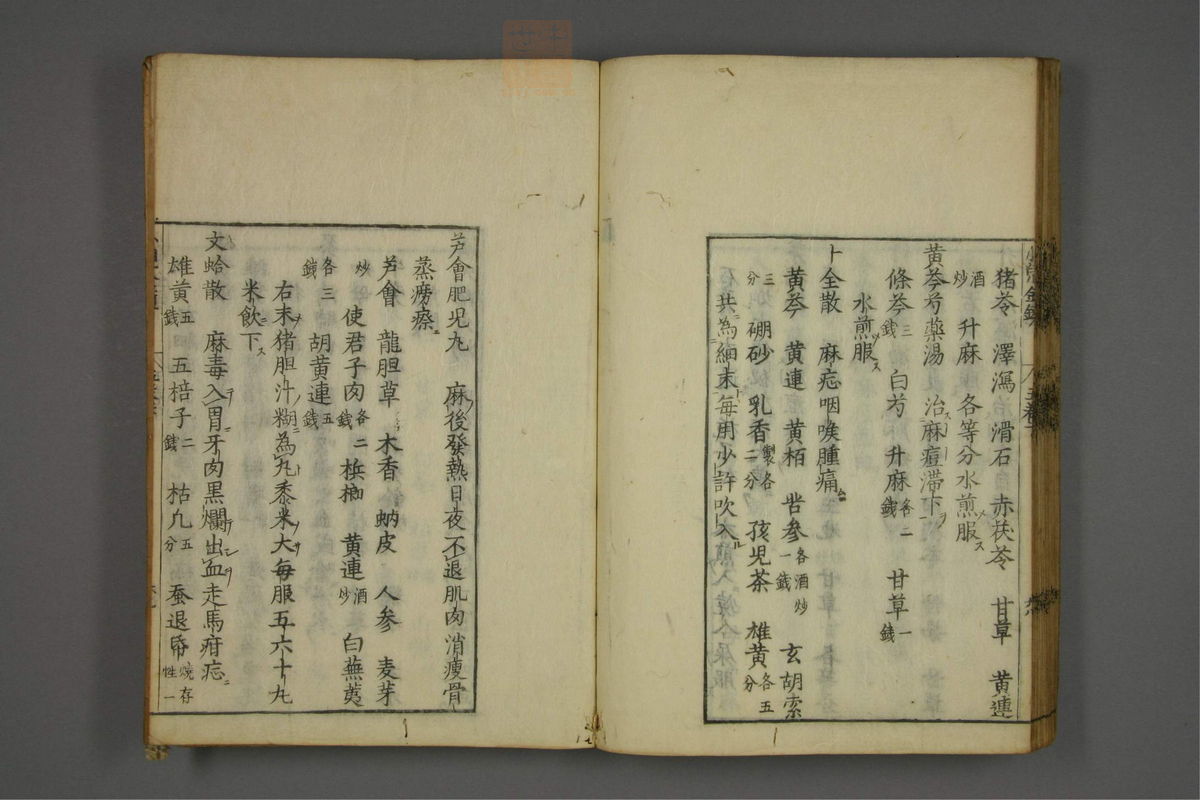 猪苓 澤瀉 滑石 赤茯苓 甘草 黄連
酒炒 升麻 各等分水煎服ス
黄芩芍薬湯 治麻痘滞下ヲ
條芩三錢 白芍 升麻各二錢 甘草一錢
水煎服ス
卜全散 麻疹咽喉腫痛
黄芩 黄連 黄栢 苦参各酒炒一錢 玄胡索
三分 硼砂 乳香製各二分 孩児茶 雄黄各五分
共為細末毎用少許吹入ル
芦會肥児丸 麻後發熱日夜不退肌肉消痩骨
蒸癆瘵
芦會 龍胆草 木香 蚋皮 人参 麦芽
炒 使君子肉各二錢 梹榔 黄連酒炒 白蕪荑
各三錢 胡黄連五錢
右末猪胆汁糊為丸黍米大毎服五六十丸
米飲下ス
文蛤散 麻毒入胃牙肉黒爛出血走馬疳
雄黄五錢 五棓子二錢 枯凢五分 蚕退帋燒存性一